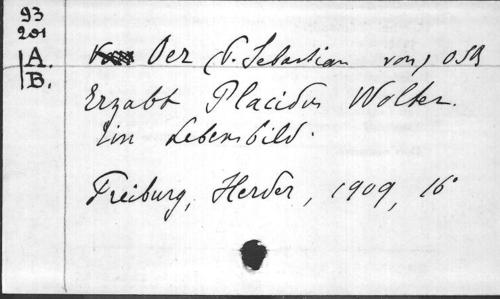 93
201
A.
B.
Oer (P. Sebastian von) OSB
Erzabt Placidus Wolter.
Ein Lebensbild.
Freiburg, Herder, 1909, 16°